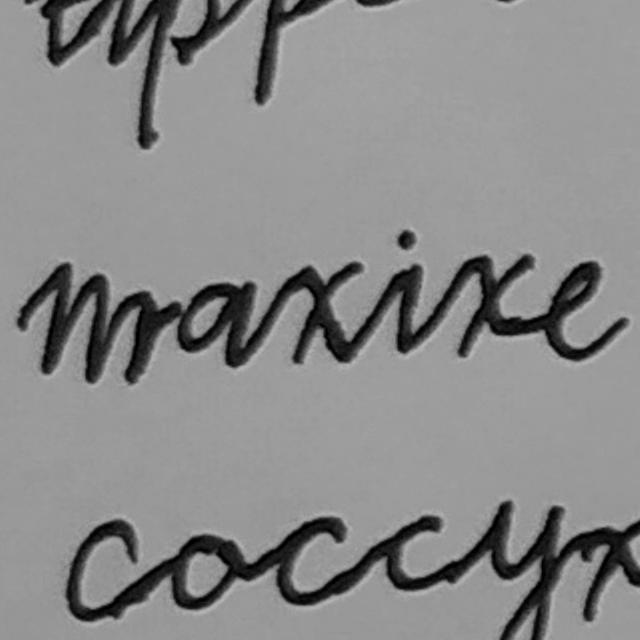 maxixe
coccyx